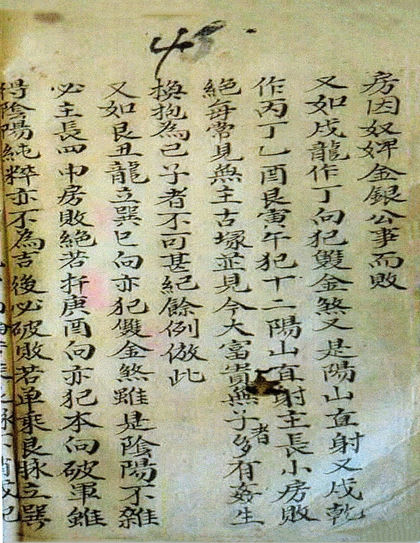 45
房因奴婢金銀公事而敗
又如戌龍作丁向犯雙金煞又是陽山直射又戌乾
作丙丁乙酉艮寅午犯十二陽山直射主長小房敗
絕每常見無主古塚並見今大富貴無子者多有姦生
換抱為己子者不可甚紀餘例倣此
又如艮丑龍立巽巳向亦犯雙金煞雖是陰陽不雜
必主長四中房敗絕若扦庚酉向亦犯本向破軍雖
得陰陽純粹亦不為吉後必破敗若單乘艮脉立巽